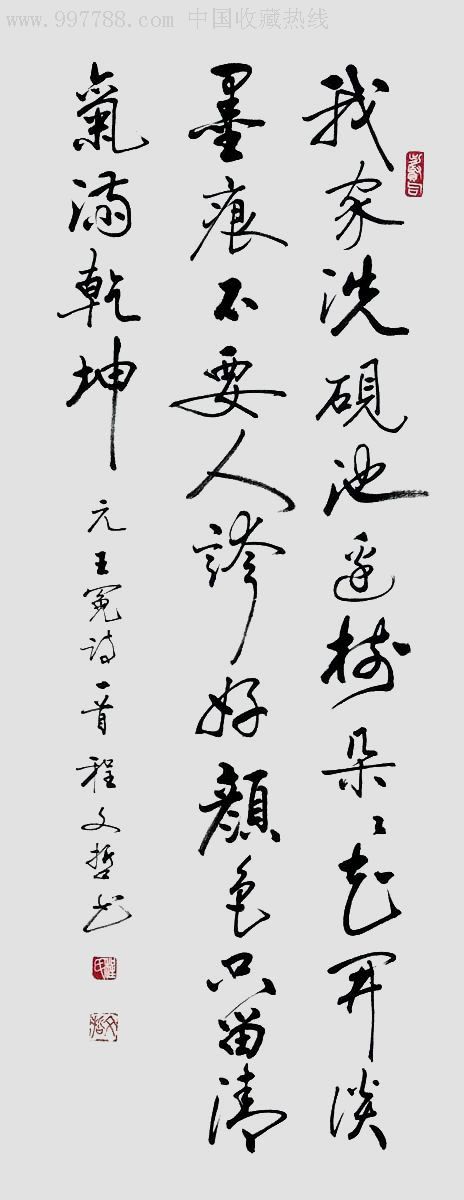 www.997788.com 中国收藏热线
我家洗硯池邊樹朵々花開淡
墨痕不要人誇好顏色只留清
氣滿乾坤 元王冕詩一首 程文哲书